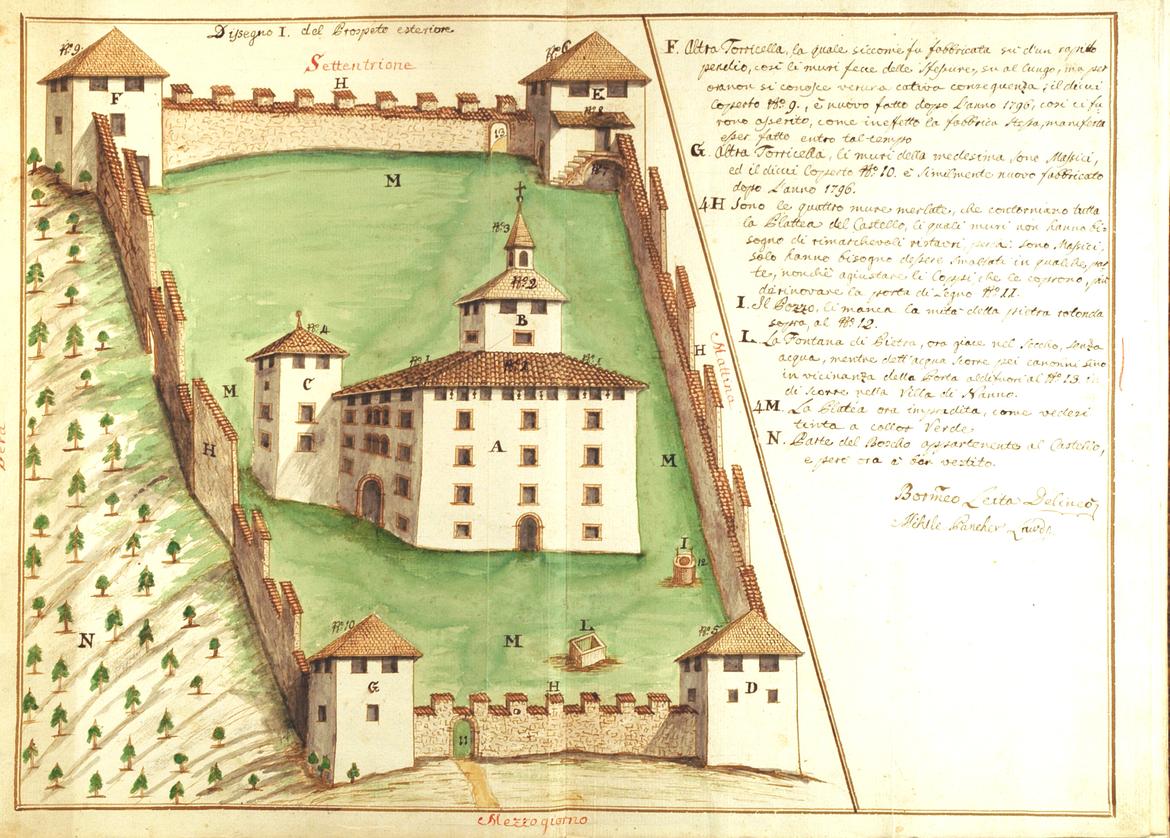 Dissegno I. del Prospeto esteriore
Settentrione
H
No. 9.
F
No. 6
E
No. 8
No. 7
13
M
No. 3
No. 2
B
No. 4
C
No. 1
No. 1
No. 1
A
M
H
H
Mattina
M
I
12
N
No. 10
G
M
L
H
No. 5
D
11
Mezzo giorno
F. Altra Torricella, la quale siccome fu fabbricata su d'un rapido
pendio, così li muri fece delle fessure, su al lungo, ma per
ora non si conosce veruna cativa consequenza; il di cui
Coperto No. 9., è nuovo fatto dopo l'anno 1796, così ci fu
rono asserito, come in efetto la fabbrica stessa, manifesta
esser fatto entro tal tempo
G. Altra Torricella, li muri della medesima sono Massici,
ed il di cui Coperto No. 10. è similmente nuovo fabbricato
dopo l'anno 1796.
4H Sono le quattro mure merlate, che contorniano tutta
la Plattea del Castello, li quali muri non hanno bi-
sogno di rimarchevoli ristauri, sono Massici,
solo hanno bisogno d'essere smaltati in qualche par
te, nonchè agiustare li Coppi che le coprono, più
di rinovare la porta di Legno No. 11.
I. Il Pozzo, li manca la metà della pietra rotonda
sopra, al No. 12.
L. La Fontana di Pietra, ora giace nel Secco, senza
acqua, mentre dett'acqua scorre pei canonni sino
in vicinanza della Porta al di fuori al No. 13. in
di scorre nella Villa di Nanno.
4M. La Platea ora impradita, come vedesi
tinta a collor Verde
N. Parte del Boscho appartenente al Castello,
e però ora è ben vestito.
Delineò